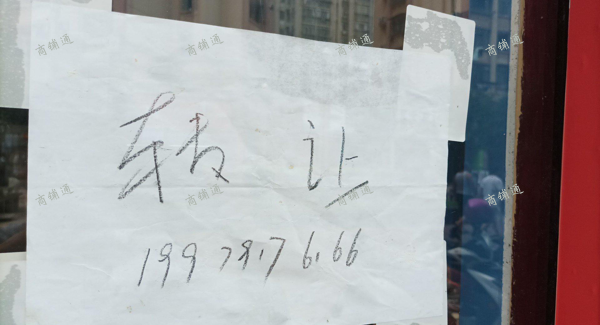 商铺通 商铺通 商铺通 商铺通
转让
商铺通 商铺通 商铺通 商铺通
19979176166